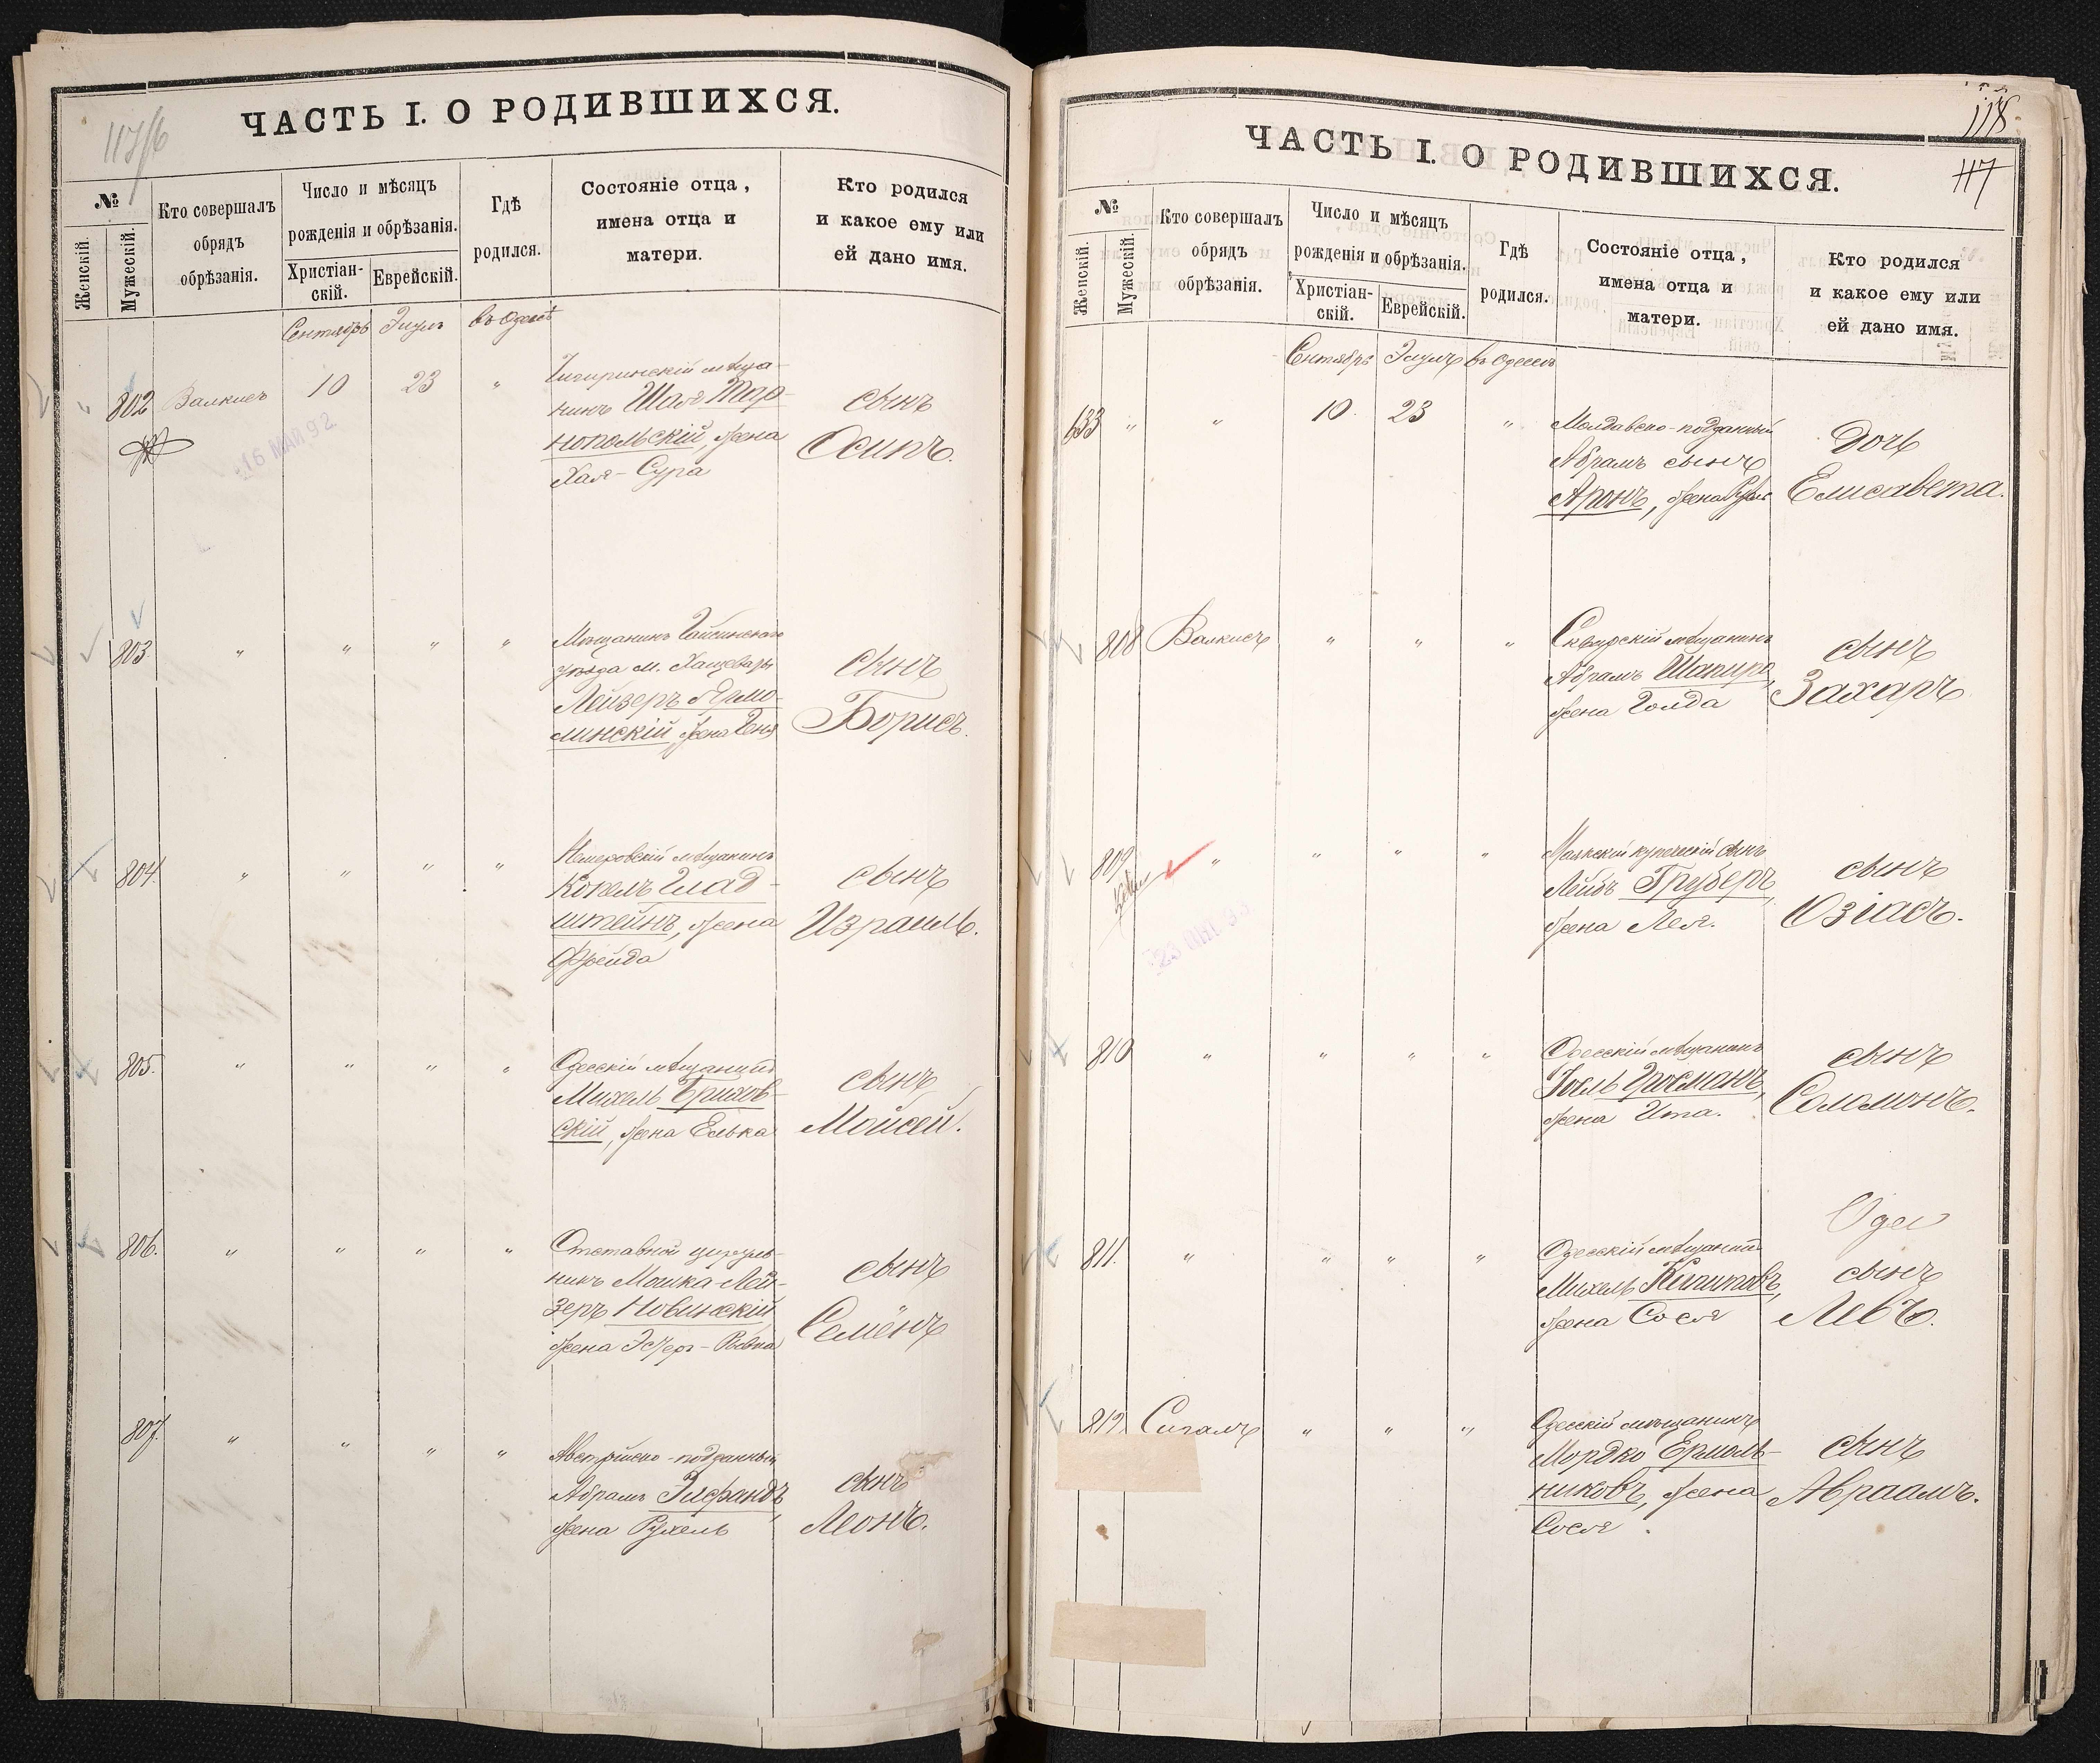 117/б
ЧАСТЬ I. О РОДИВШИХСЯ.
№
Женскій.
Мужескій.
Кто совершалъ
обрядъ
обрѣзанія.
Число и мѣсяцъ
рожденія и обрѣзанія.
Христіан-
скій.
Еврейскій.
Гдѣ
родился.
Состояніе отца,
имена отца и
матери.
Кто родился
и какое ему или
ей дано имя.
Сентябрь Элулъ въ Одессѣ
" 802 Валкисъ 10 23 "
Чигиринскій мѣща-
нинъ Шая Тар-
нопольскій, жена
Хая-Сура
сынъ
Осипъ.
16 МАЙ 92
803. " " " "
Мѣщанинъ Гайсинскаго
уѣзда м. Хащеваты
Лейзеръ Ярмо-
линскій, жена Геня
сынъ
Борисъ.
804. " " " "
Немеровскій мѣщанинъ
Копель Глад-
штейнъ, жена
Фрейда
сынъ
Израиль.
805. " " " "
Одесскій мѣщанинъ
Михель Брихов-
скій, жена Елька
сынъ
Моисей.
806. " " " "
Отставной цируль-
никъ Мошка-Лей-
зеръ Новинскій
жена Эстеръ-Ривка
сынъ
Семёнъ
807. " " " "
Австрійско-подданный
Абрамъ Элефандъ,
жена Рухель
сынъ
Леонъ.
118
117
ЧАСТЬ I. О РОДИВШИХСЯ.
№
Женскій.
Мужескій.
Кто совершалъ
обрядъ
обрѣзанія.
Число и мѣсяцъ
рожденія и обрѣзанія.
Христіан-
скій.
Еврейскій.
Гдѣ
родился.
Состояніе отца,
имена отца и
матери.
Кто родился
и какое ему или
ей дано имя.
Сентябрь Элулъ въ Одессѣ
633 " " 10 23 "
Молдавско-подданный
Абрамъ сынъ
Аронъ, жена
Дочь
Елисавета.
808 Валкисъ " " "
Сквирскій мѣщанинъ
Абрамъ Шапиро,
жена Голда
сынъ
Захаръ
809 " " " "
Маякскій купеческій сынъ
Лейбъ Груберъ,
жена Лея.
сынъ
Озіасъ.
810 " " " "
Одесскій мѣщанинъ
Іосль Гросманъ,
жена Ита.
сынъ
Соломонъ.
811. " " " "
Одесскій мѣщанинъ
Михель
жена Сося
сынъ
Левъ.
812 Сигалъ " " "
Одесскій мѣщанинъ
Мордко Ермоль-
никовъ, жена
Сося.
сынъ
Авраамъ.